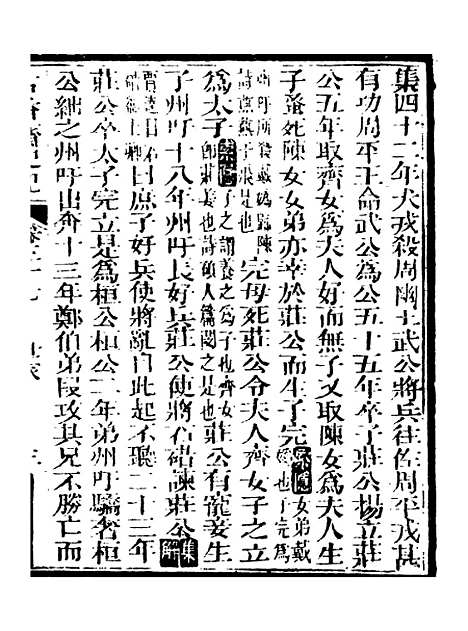 集四十二年犬戎殺周幽王武公將兵往佐周平戎甚
有功周平王命武公為公五十五年卒子莊公揚立莊
公五年取齊女為夫人好而無子又取陳女為夫人生
子蚤死陳女女弟亦幸於莊公而生子完索隱女弟戴媯也子完為
完母死莊公令夫人齊女子之立
為太子索隱子之謂養之為子也齊女即莊姜也詩碩人篇閔之是也莊公有寵妾生
子州吁十八年州吁長好兵莊公使將石碏諫莊公集解
曰庶子好兵使將亂自此起不聽二十三年
莊公卒太子完立是為桓公桓公二年弟州吁驕奢桓
公絀之州吁出奔十三年鄭伯弟段攻其兄不勝亡而